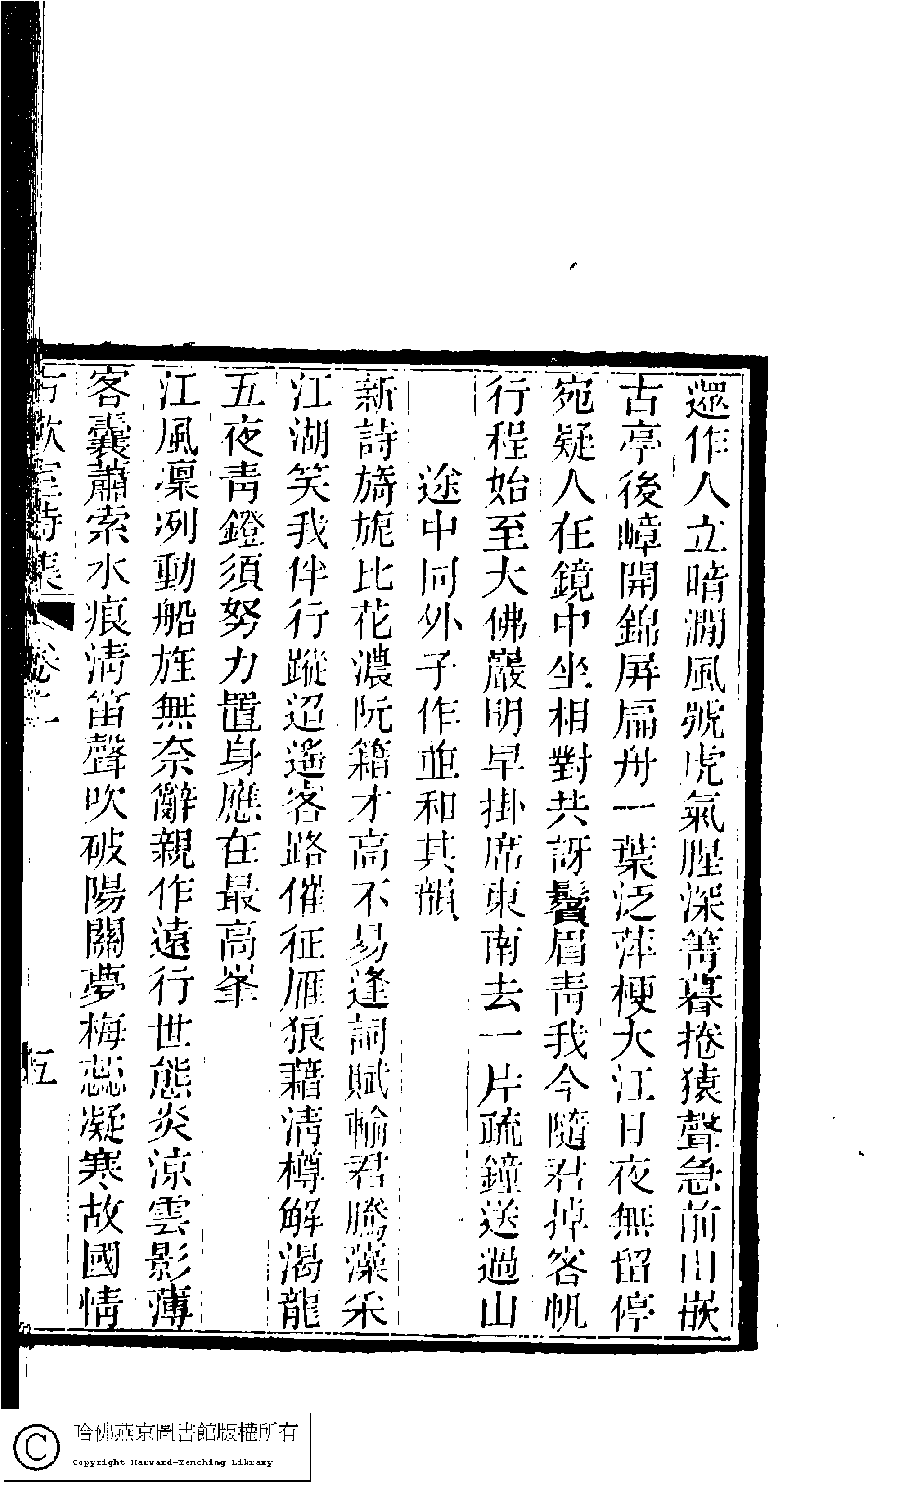 還作人立暗澗風號虎氣腥深箐暮捲猿聲急前山嵌
古亭後嶂開錦屏扁舟一葉泛萍梗大江日夜無留停
宛疑人在鏡中坐相對共訝鬢眉靑我今隨君掉客帆
行程始至大佛巖明早掛席東南去一片疏鐘送過山
途中同外子作並和其韻
新詩旖旎比花濃阮籍才高不易逢詞賦輸君騰藻采
江湖笑我伴行蹤迢遙客路催征雁狼藉淸樽解渴龍
五夜靑鐙須努力置身應在最高峯
江風凜冽動船旌無奈辭親作遠行世態炎涼雲影薄
客囊蕭索水痕淸笛聲吹破陽關夢梅蕊凝寒故國情
古歡室詩集 卷二 五
哈佛燕京圖書館版權所有
Copyright Harvard-Yenching Library